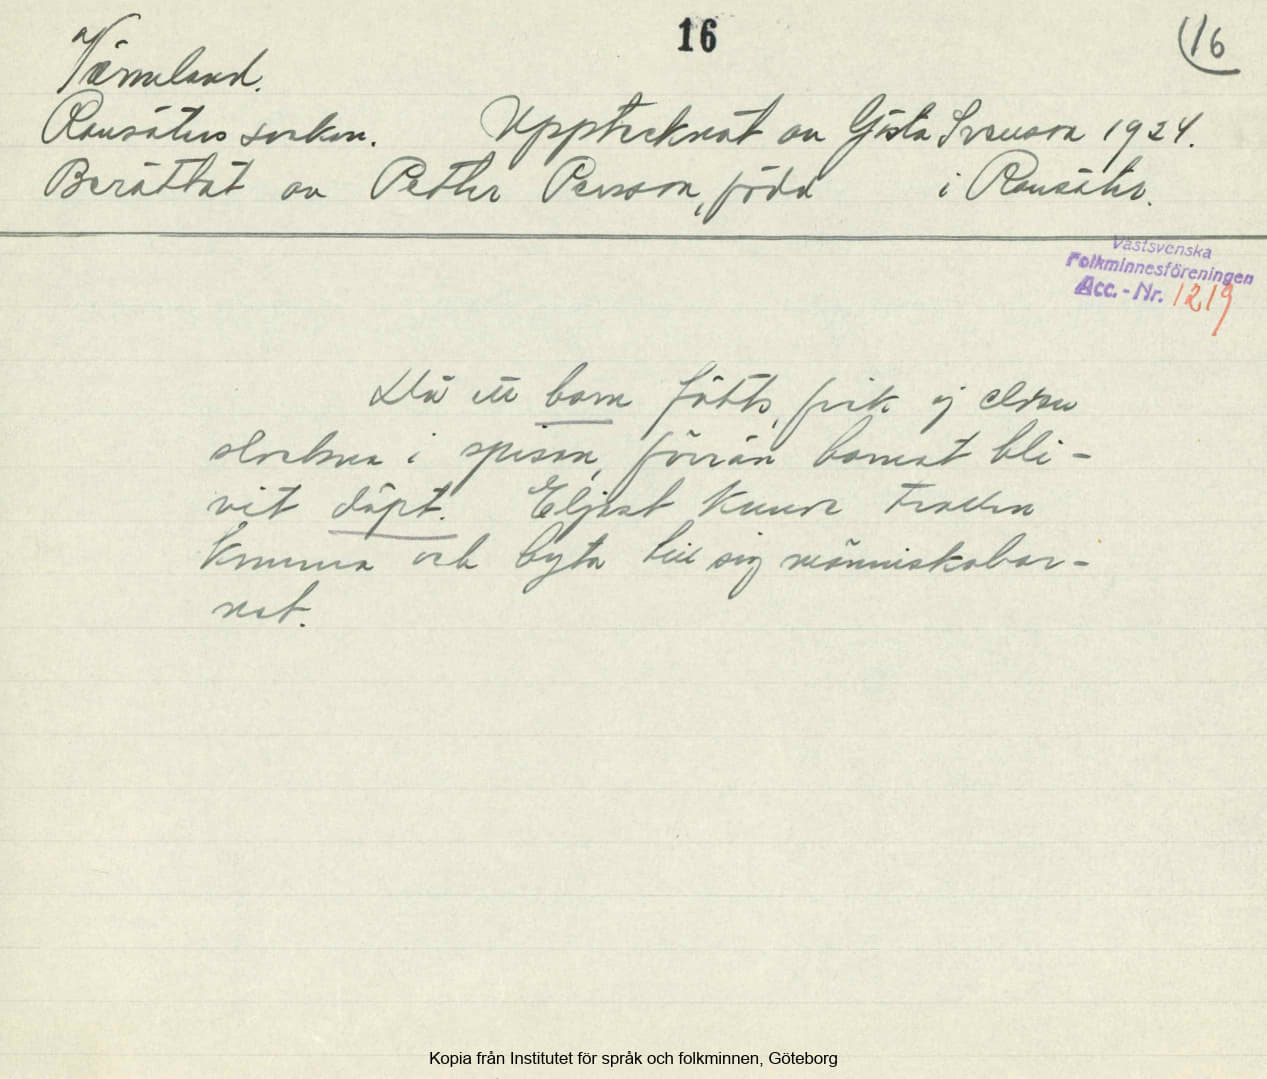 16
16
Värmland.
Ransäters socken. Upptecknat av Gösta Svenson 1924.
Berättat av Petter Persson, född i Ransäter.
Västsvenska
Folkminnesföreningen
Acc.-Nr. 1219
Då ett barn fötts, fick ej elden
slockna i spisen, förrän barnet bli-
vit döpt. Eljest kunde trollen
komma och byta till sig människobar-
net.
Kopia från Institutet för språk och folkminnen, Göteborg